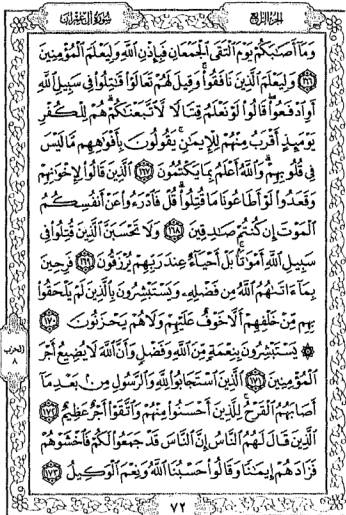 الجزء الرابع
سورة آل عمران
وَمَا أَصَابَكُمْ يَوْمَ الْتَقَى الْجَمْعَانِ فَبِإِذْنِ اللَّهِ وَلِيَعْلَمَ الْمُؤْمِنِينَ
١٦٦ وَلِيَعْلَمَ الَّذِينَ نَافَقُوا وَقِيلَ لَهُمْ تَعَالَوْا قَاتِلُوا فِي سَبِيلِ اللَّهِ
أَوِ ادْفَعُوا قَالُوا لَوْ نَعْلَمُ قِتَالًا لَاتَّبَعْنَاكُمْ هُمْ لِلْكُفْرِ
يَوْمَئِذٍ أَقْرَبُ مِنْهُمْ لِلْإِيمَانِ يَقُولُونَ بِأَفْوَاهِهِم مَّا لَيْسَ
فِي قُلُوبِهِمْ وَاللَّهُ أَعْلَمُ بِمَا يَكْتُمُونَ ١٦٧ الَّذِينَ قَالُوا لِإِخْوَانِهِمْ
وَقَعَدُوا لَوْ أَطَاعُونَا مَا قُتِلُوا قُلْ فَادْرَءُوا عَنْ أَنفُسِكُمُ
الْمَوْتَ إِن كُنتُمْ صَادِقِينَ ١٦٨ وَلَا تَحْسَبَنَّ الَّذِينَ قُتِلُوا فِي
سَبِيلِ اللَّهِ أَمْوَاتًا بَلْ أَحْيَاءٌ عِندَ رَبِّهِمْ يُرْزَقُونَ ١٦٩ فَرِحِينَ
بِمَا ءَاتَاهُمُ اللَّهُ مِن فَضْلِهِ وَيَسْتَبْشِرُونَ بِالَّذِينَ لَمْ يَلْحَقُوا
بِهِم مِّنْ خَلْفِهِمْ أَلَّا خَوْفٌ عَلَيْهِمْ وَلَا هُمْ يَحْزَنُونَ ١٧٠
۞ يَسْتَبْشِرُونَ بِنِعْمَةٍ مِّنَ اللَّهِ وَفَضْلٍ وَأَنَّ اللَّهَ لَا يُضِيعُ أَجْرَ
الْمُؤْمِنِينَ ١٧١ الَّذِينَ اسْتَجَابُوا لِلَّهِ وَالرَّسُولِ مِن بَعْدِ مَا
أَصَابَهُمُ الْقَرْحُ لِلَّذِينَ أَحْسَنُوا مِنْهُمْ وَاتَّقَوْا أَجْرٌ عَظِيمٌ ١٧٢
الَّذِينَ قَالَ لَهُمُ النَّاسُ إِنَّ النَّاسَ قَدْ جَمَعُوا لَكُمْ فَاخْشَوْهُمْ
فَزَادَهُمْ إِيمَانًا وَقَالُوا حَسْبُنَا اللَّهُ وَنِعْمَ الْوَكِيلُ ١٧٣
الحزب
٨
٧٢